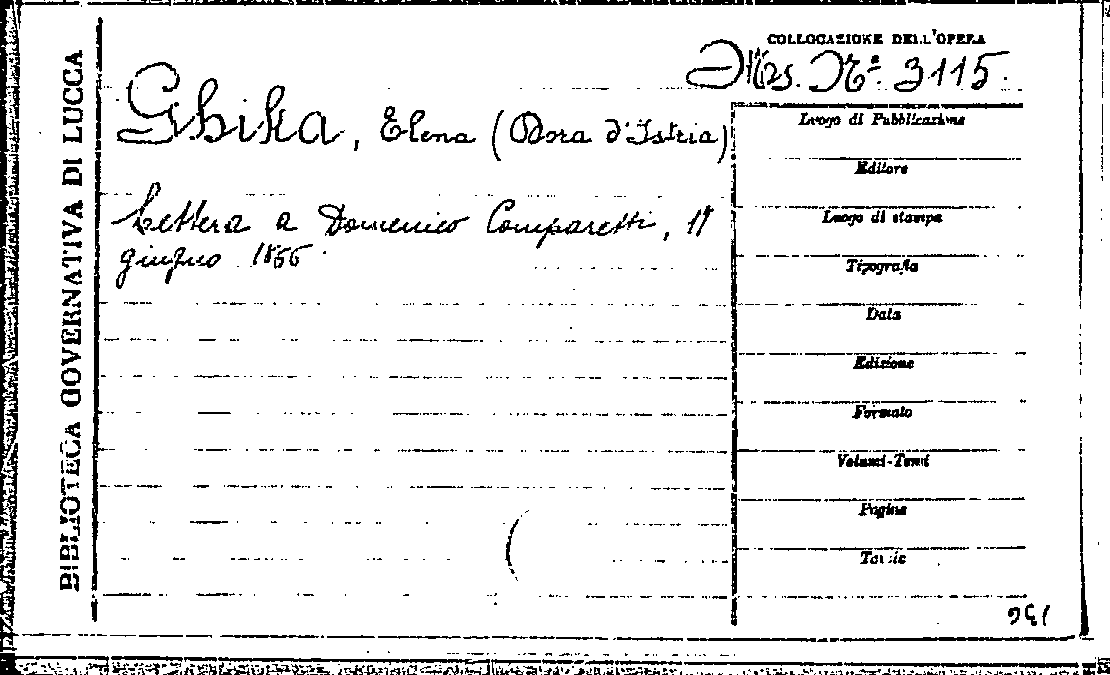 BIBLIOTECA GOVERNATIVA DI LUCCA
COLLOCAZIONE DELL'OPERA
Mss. N.º 3115.
Ghika, Elena (Dora d'Istria)
Lettera a Domenico Comparetti, 11
giugno 1866
Luogo di Pubblicazione
Editore
Luogo di stampa
Tipografia
Data
Edizione
Formato
Volumi-Tomi
Pagine
Tavole